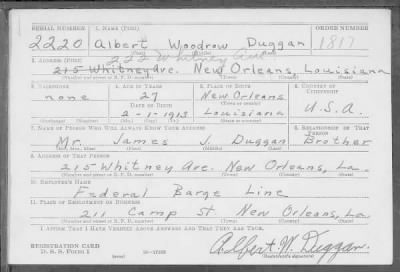 SERIAL NUMBER 1. NAME (Print) ORDER NUMBER
2220 Albert Woodrow Duggan 1817
222 Whitney Ave.
2. ADDRESS (Print)
215 Whitney Ave. New Orleans, Louisiana
3. TELEPHONE 4. AGE IN YEARS 5. PLACE OF BIRTH 6. COUNTRY OF CITIZENSHIP
none 27 New Orleans
DATE OF BIRTH (Town or county)
2-1-1913 Louisiana U.S.A.
(Exchange) (Number) (Mo.) (Day) (Yr.) (State or country)
7. NAME OF PERSON WHO WILL ALWAYS KNOW YOUR ADDRESS 8. RELATIONSHIP OF THAT PERSON
Mr. James J. Duggan Brother
(Mr., Mrs., Miss) (First) (Middle) (Last)
9. ADDRESS OF THAT PERSON
215 Whitney Ave. New Orleans, La.
(Number and street or R. F. D. number) (Town) (County) (State)
10. EMPLOYER'S NAME
Federal Barge Line
11. PLACE OF EMPLOYMENT OR BUSINESS
211 Camp St New Orleans, La
(Number and street or R. F. D. number) (Town) (County) (State)
I AFFIRM THAT I HAVE VERIFIED ABOVE ANSWERS AND THAT THEY ARE TRUE.
REGISTRATION CARD
D. S. S. FORM 1 (over) Albert W. Duggan
(Registrant's signature)